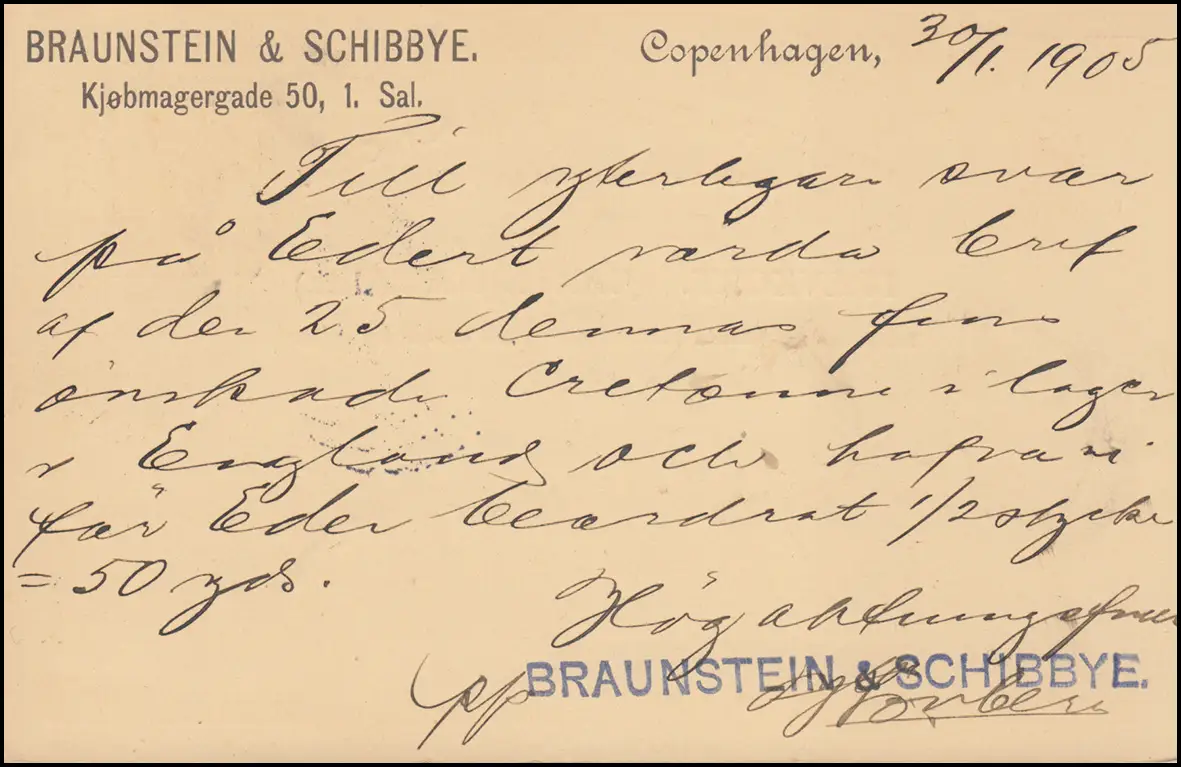 BRAUNSTEIN & SCHIBBYE.
Kjøbmagergade 50, 1. Sal.
Copenhagen, 30/1. 1905
Till yterligare svar
på Edert värda bref
af den 25 dennas fins
önskade Cretonne i lager
i England och hafva vi
för Eder beordrat 1/2 stycke
= 50 yds.
Högaktningsfull
pp BRAUNSTEIN & SCHIBBYE.